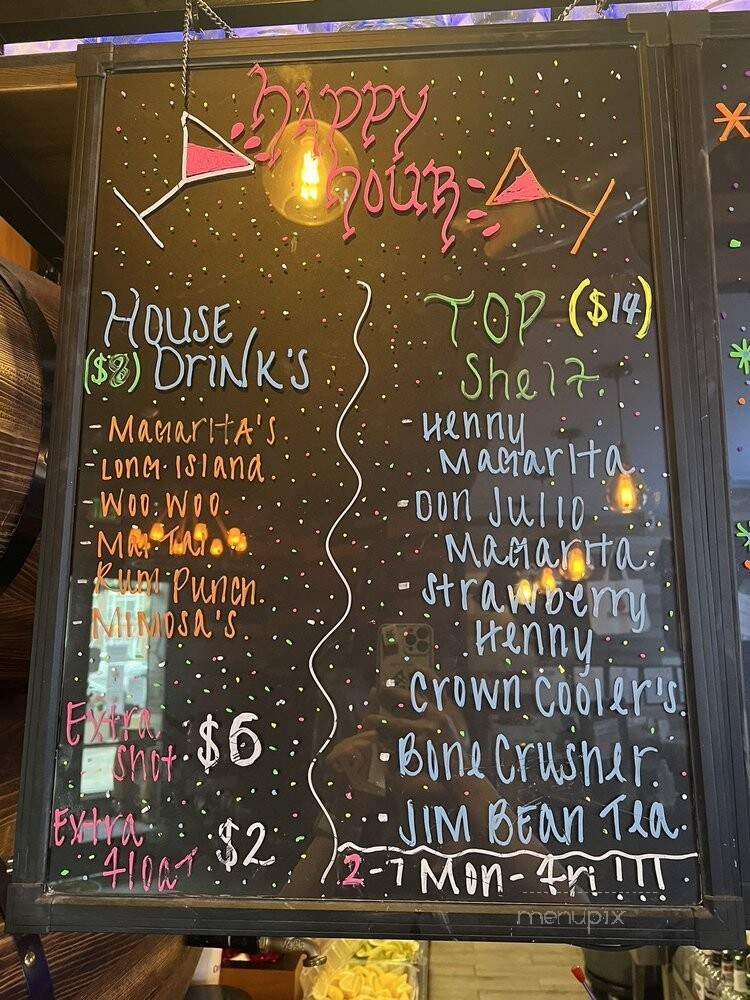 Happy
Hour
House
($8) Drink's
- Magarita's
- Long Island
- Woo Woo
- Mai Tai
- Rum Punch
- Mimosa's
Extra
Shot $6
Extra
Float $2
Top ($14)
Shelf
- Henny
Magarita
- Don Julio
Magarita
- Strawberry
Henny
- Crown Cooler's
- Bone Crusher
- Jim Bean Tea
2-7 Mon-Fri!!!
menupix